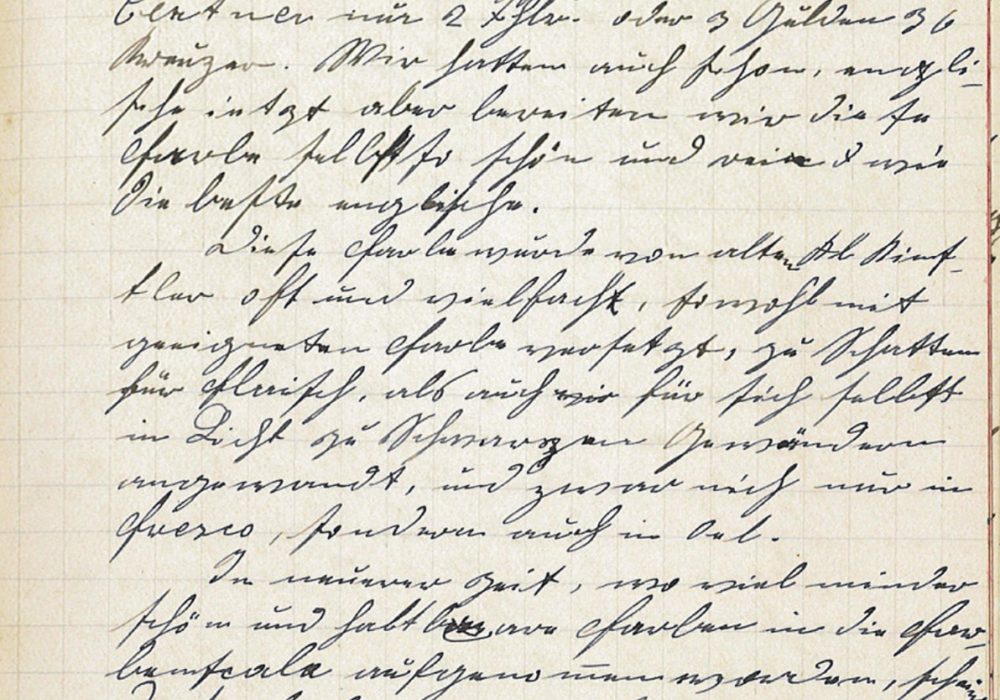 Centner nur 2 Thlr. oder 3 Gulden 36
Kreuzer. Wir hatten auch schon, engli-
sche intzt aber bereiten wir diese
Farbe selbst so schön und rein & wie
die beste englische.
Diese Farbe wurde von alten Künst-
tler oft und vielfach, sowohl mit
geeigneten Farbe versetzt, zu Schatten
für Fleisch, als auch wir für sich selbst
in Licht zu Schwarzen Gewändern
angewandt, und zwar nich nur in
Fresco, sondern auch in Oel.
In neuerer Zeit, wo viel minder
schön und haltbare Farben in die Far-
benscala aufgenommen worden, schein